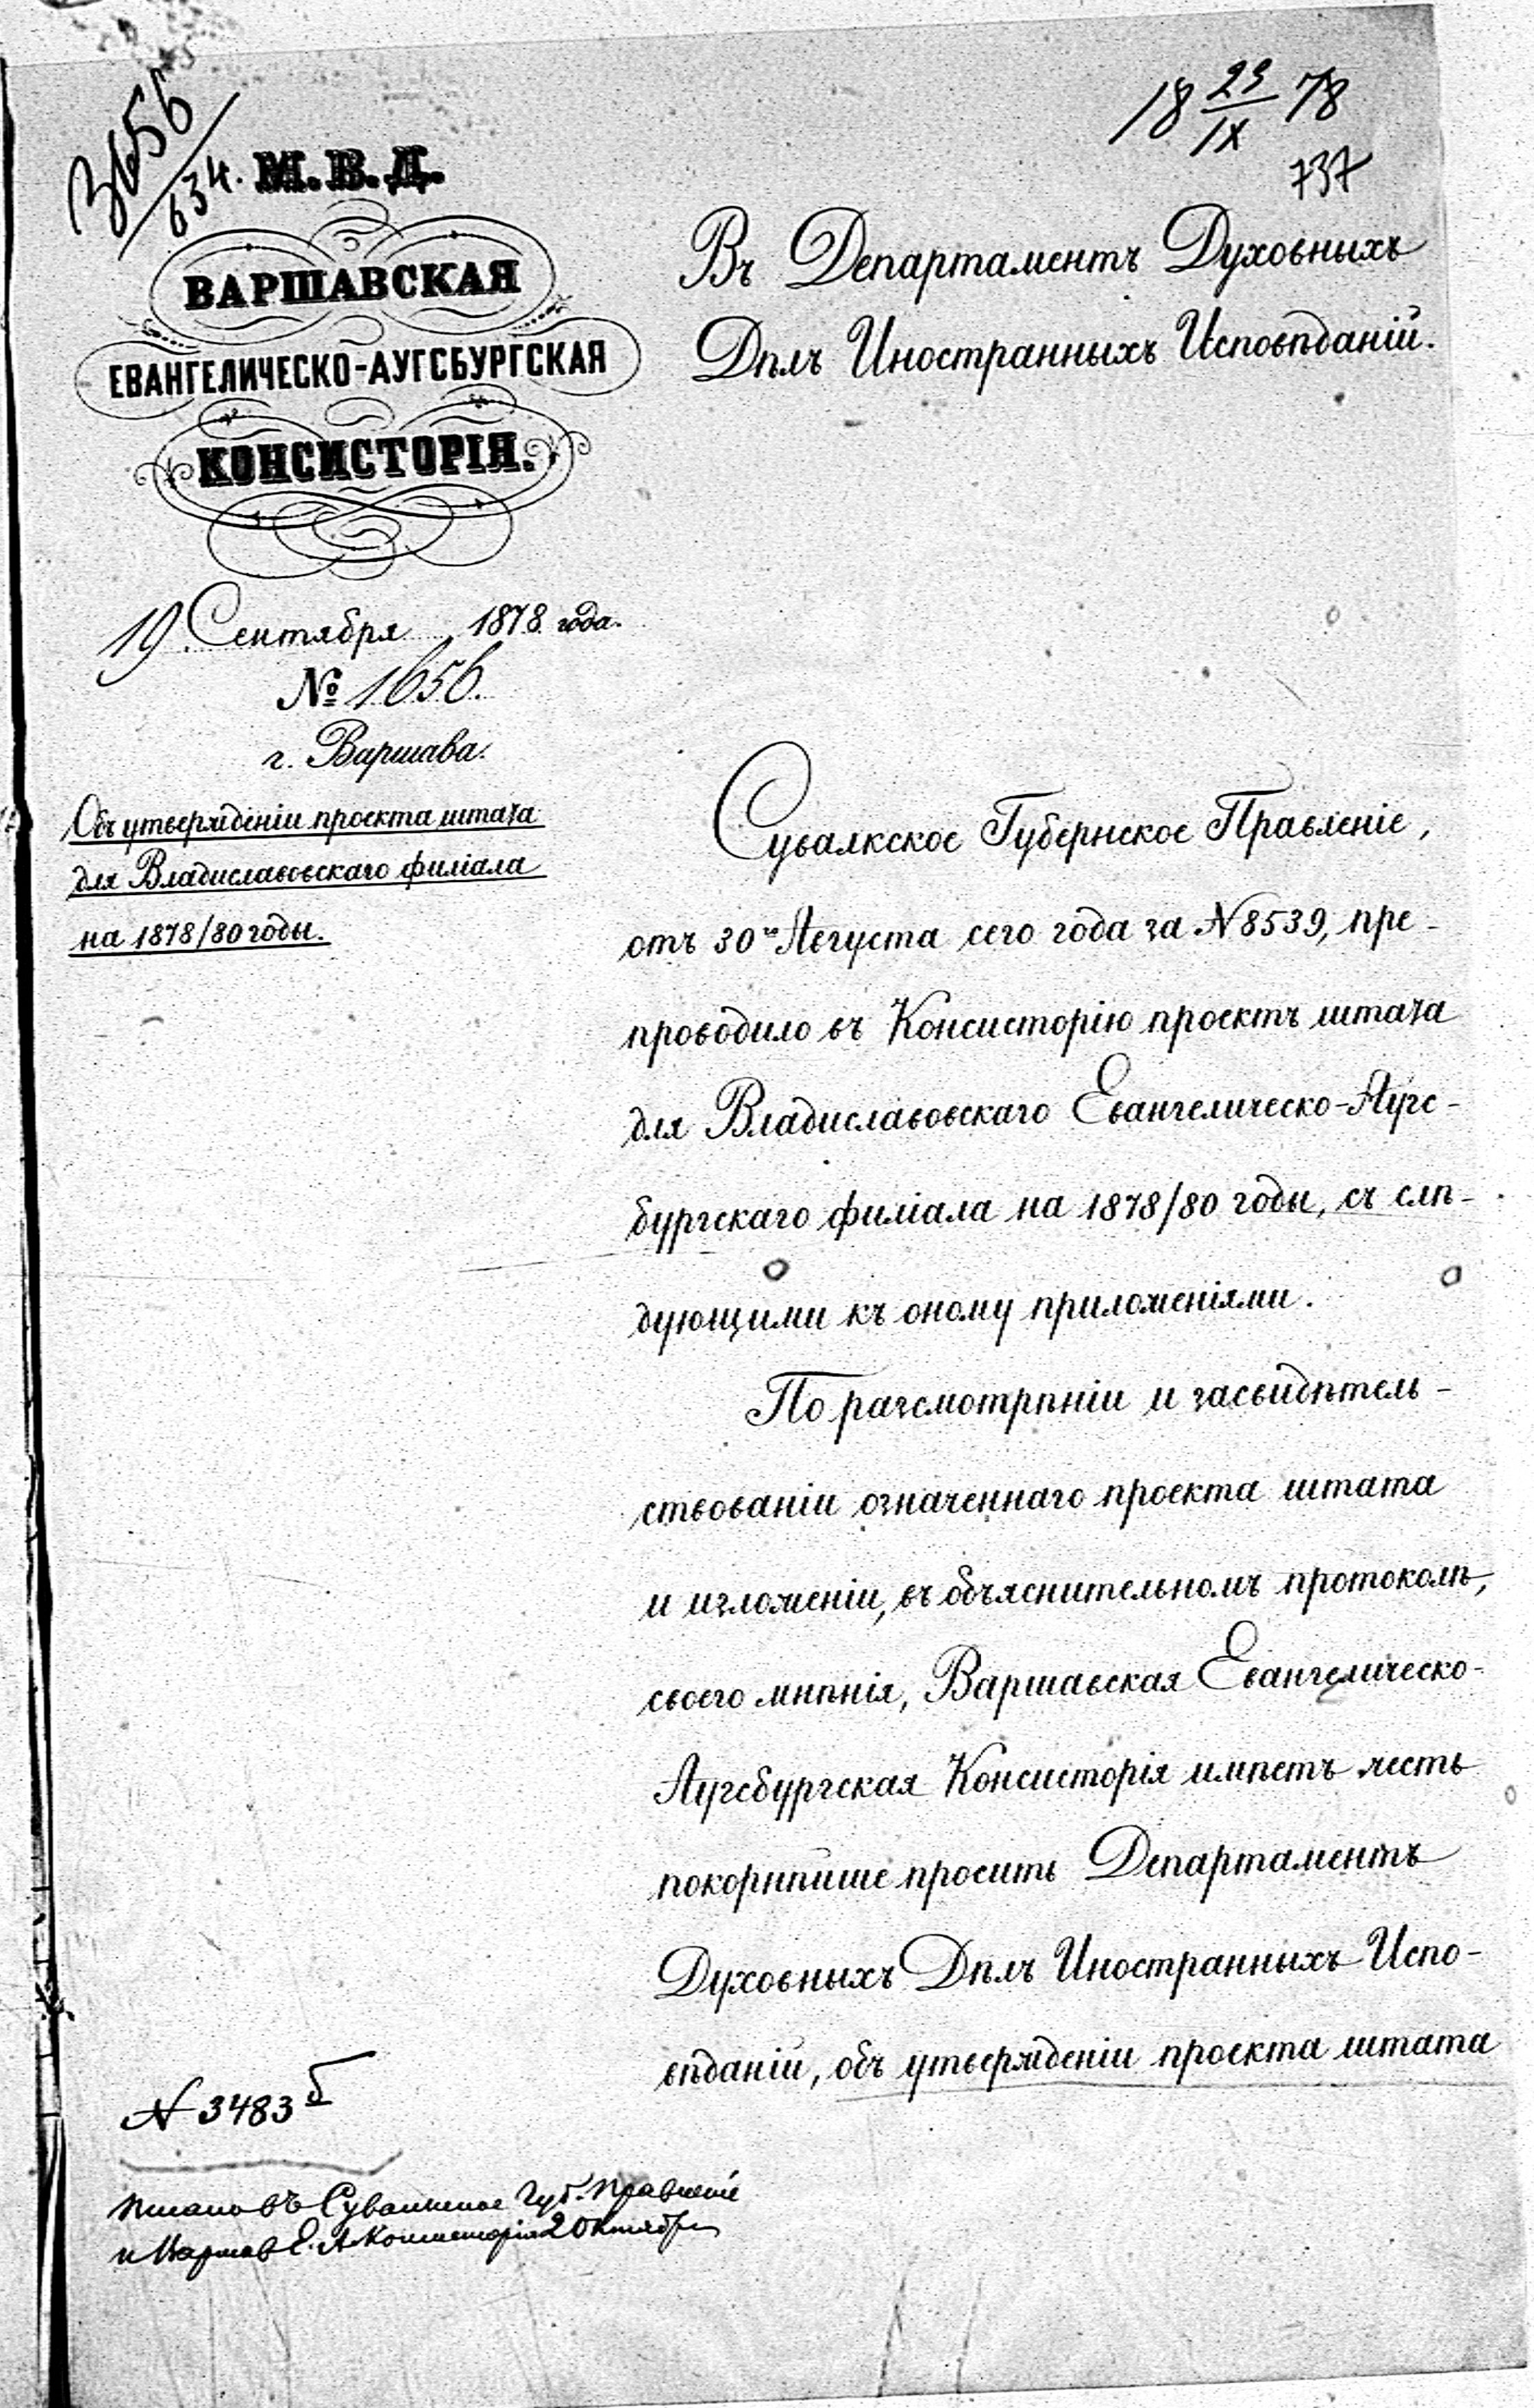 1656
634.
18 23/IX 78
737
М. В. Д.
ВАРШАВСКАЯ
ЕВАНГЕЛИЧЕСКО-АУГСБУРГСКАЯ
КОНСИСТОРІЯ.
19 Сентября 1878 года.
№ 1656.
г. Варшава.
Объ утвержденіи проекта штата
для Владиславовскаго филіала
на 1878/80 годы.
Въ Департаментъ Духовныхъ
Дѣлъ Иностранныхъ Исповѣданій.
Сувалкское Губернское Правленіе,
отъ 30го Августа сего года за № 8539, пре-
проводило въ Консисторію проектъ штата
для Владиславовскаго Евангелическо-Аугс-
бургскаго филіала на 1878/80 годы, съ слѣ-
дующими къ оному приложеніями.
По разсмотрѣніи и засвидѣтель-
ствованіи означеннаго проекта штата
и изложеніи, въ объяснительномъ протоколѣ,
своего мнѣнія, Варшавская Евангелическо-
Аугсбургская Консисторія имѣетъ честь
покорнѣйше просить Департаментъ
Духовныхъ Дѣлъ Иностранныхъ Испо-
вѣданій, объ утвержденіи проекта штата
№ 3483 б
Писано въ Сувалкское Губ. Правленіе
и Варшав. Е. А. Консисторія 2 Октября